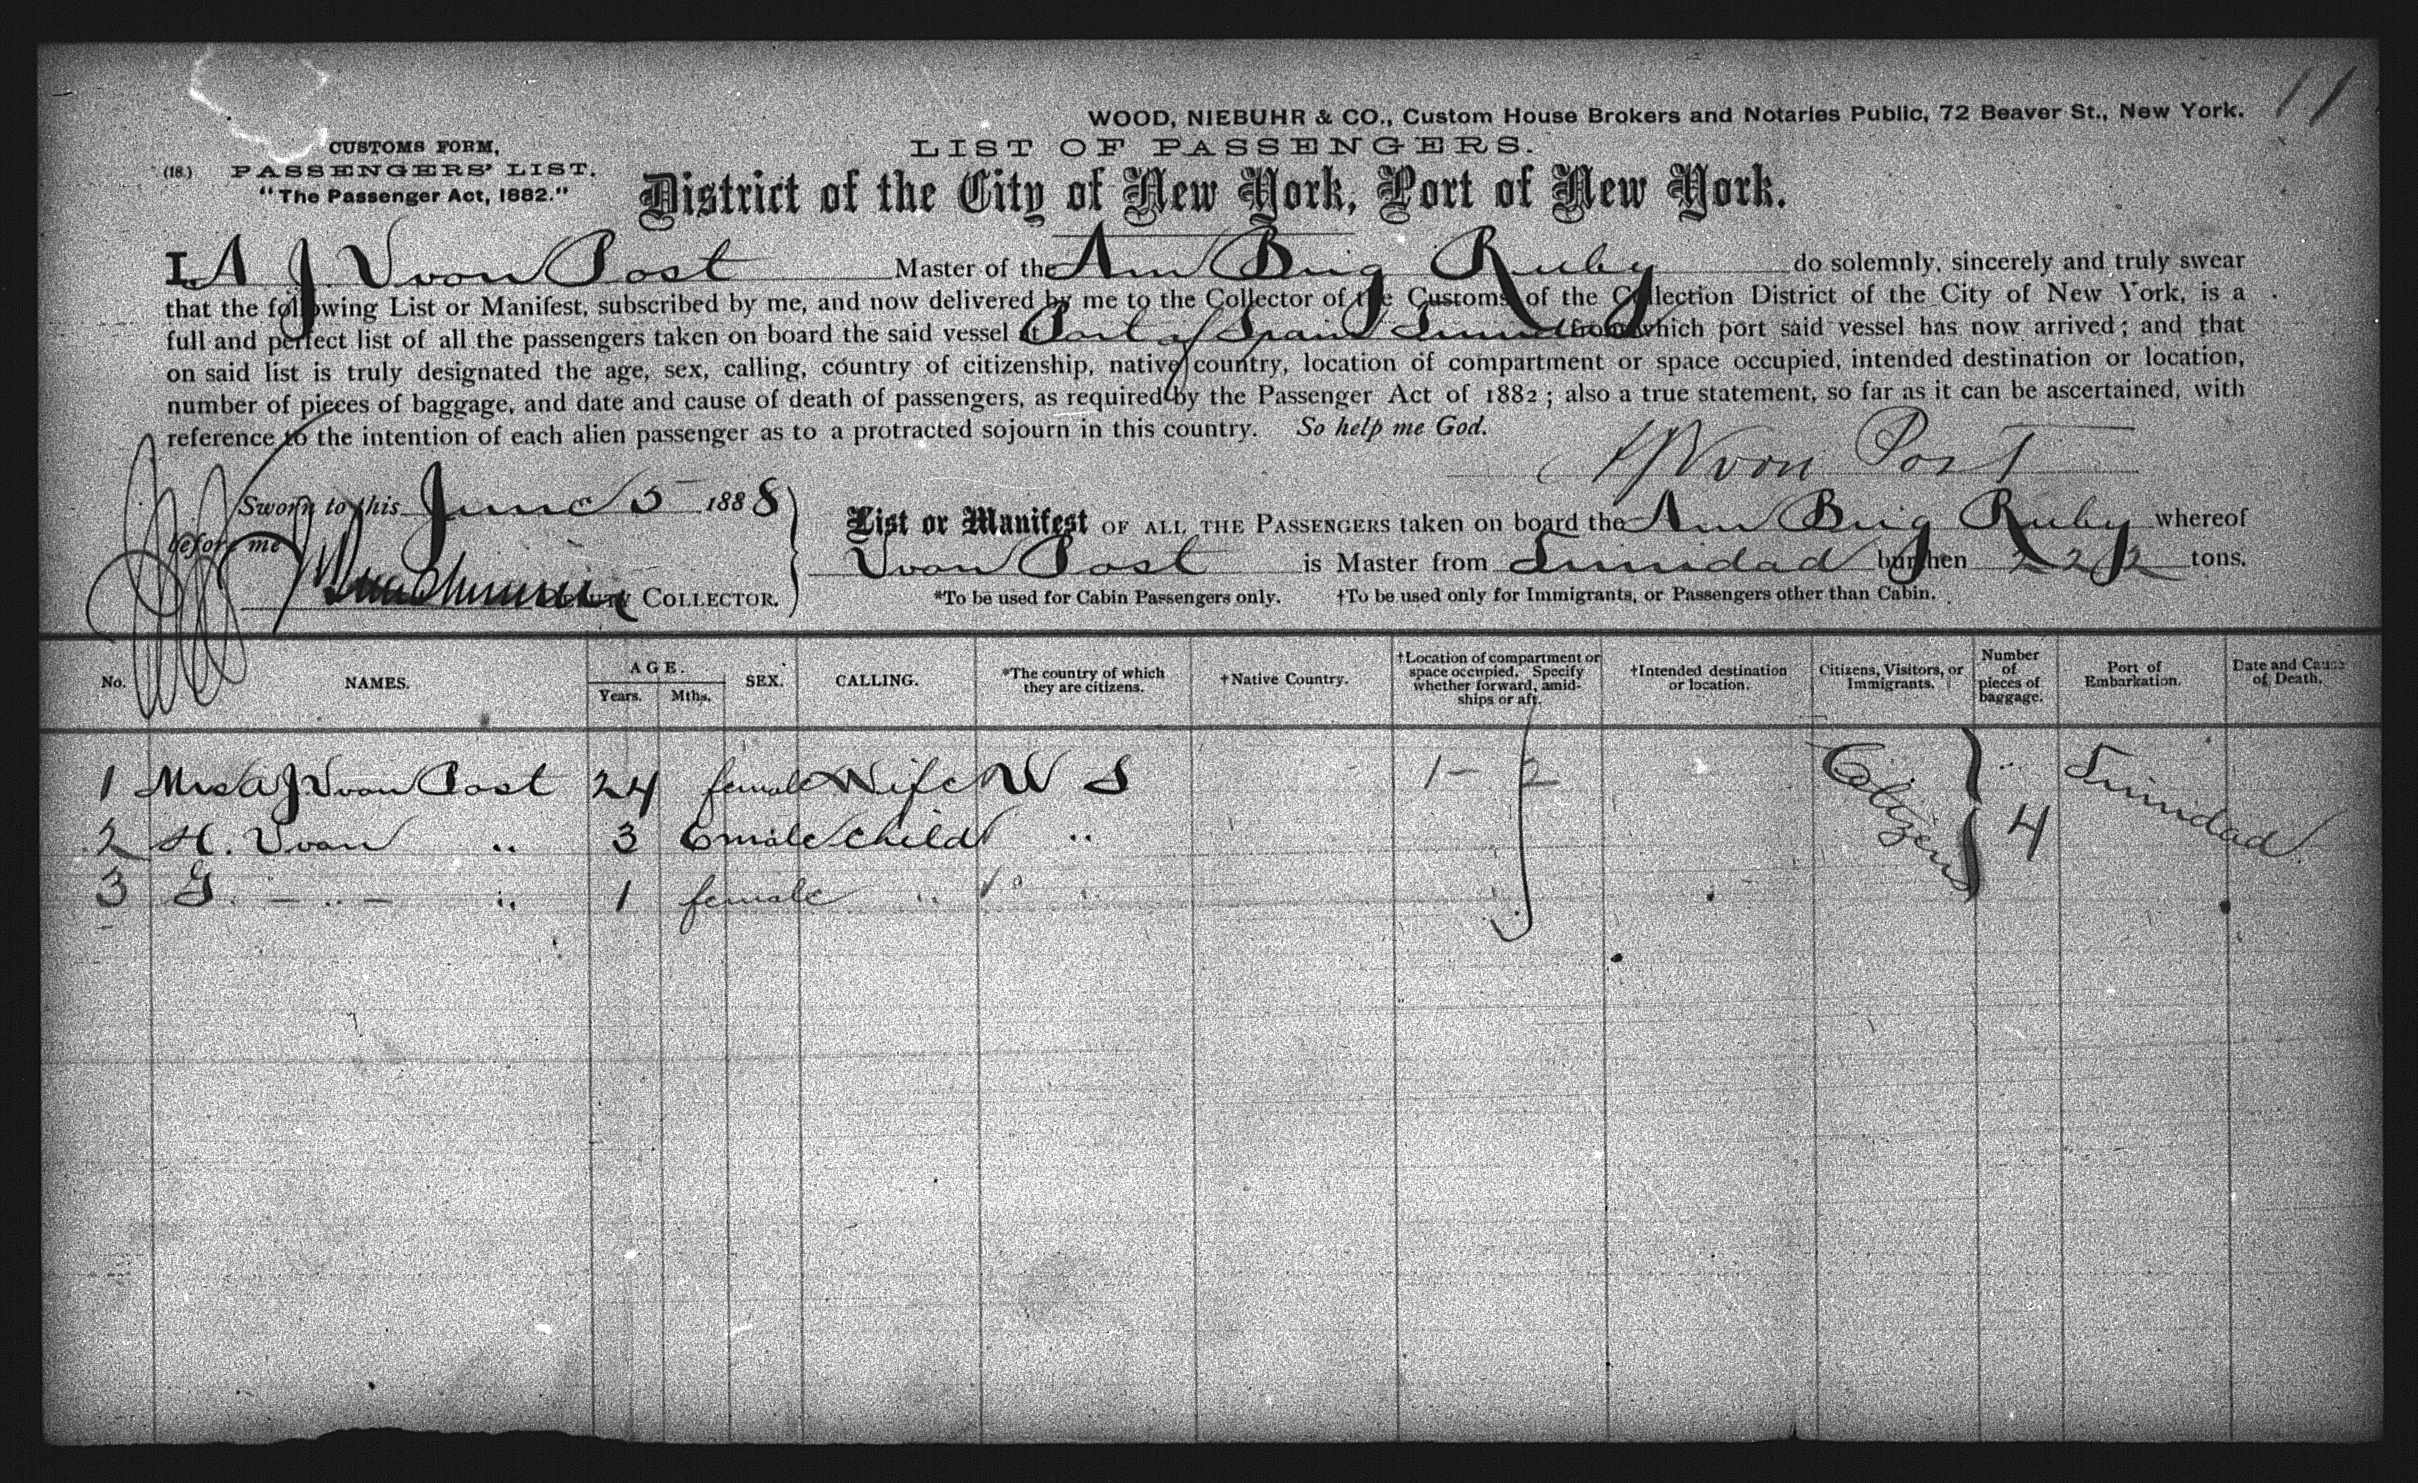 11
WOOD, NIEBUHR & CO., Custom House Brokers and Notaries Public, 72 Beaver St., New York.
CUSTOMS FORM,
LIST OF PASSENGERS.
(18.) PASSENGERS' LIST.
"The Passenger Act, 1882."
District of the City of New York, Port of New York.
I, A J Vvon Post Master of the Am Brig Ruby do solemnly, sincerely and truly swear
that the following List or Manifest, subscribed by me, and now delivered by me to the Collector of the Customs of the Collection District of the City of New York, is a
full and perfect list of all the passengers taken on board the said vessel at Port of Spain Trinidad from which port said vessel has now arrived; and that
on said list is truly designated the age, sex, calling, country of citizenship, native country, location of compartment or space occupied, intended destination or location,
number of pieces of baggage, and date and cause of death of passengers, as required by the Passenger Act of 1882; also a true statement, so far as it can be ascertained, with
reference to the intention of each alien passenger as to a protracted sojourn in this country. So help me God.
AJVvon Post
Sworn to this June 5 1888
List or Manifest OF ALL THE PASSENGERS taken on board the Am Brig Ruby whereof
before me
Vvon Post is Master from Trinidad burthen 222 tons.
DEPUTY COLLECTOR.
*To be used for Cabin Passengers only. †To be used only for Immigrants, or Passengers other than Cabin.
No. NAMES. AGE. Years. Mths. SEX. CALLING. *The country of which they are citizens. †Native Country. †Location of compartment or space occupied. Specify whether forward, amid-ships or aft. †Intended destination or location. Citizens, Visitors, or Immigrants. Number of pieces of baggage. Port of Embarkation. Date and Cause of Death.
1 Mrs A J Vvon Post 24 female Wife U S 1 - 2 Citizens 4 Trinidad
2 H. Vvon " 3 male child "
3 G. - " - " 1 female " "